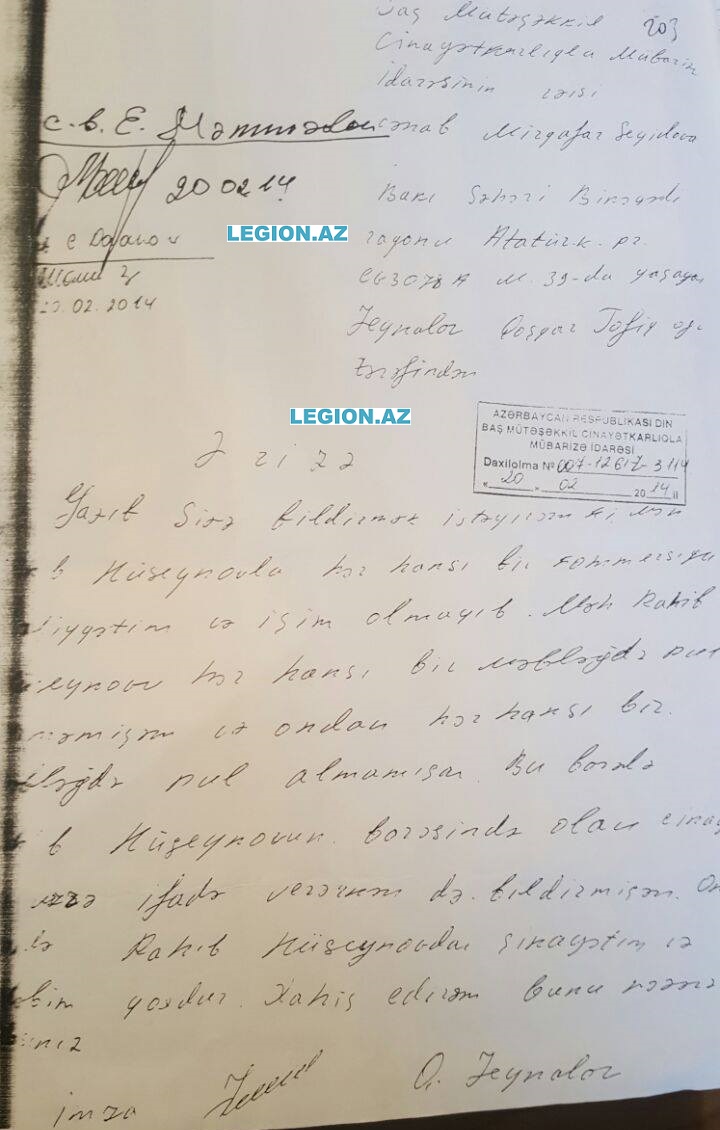 Baş Mütəşəkkil 203
Cinayətkarlıqla Mübarizə
idarəsinin rəisi
cənab Mirqafar Seyidova
c.b. E. Məmmədov
20 02 14
Bakı Şəhəri Binəqədi
LEGION.AZ
rayonu Atatürk. pr.
M. 39-da yaşayan
20.02.2014
Zeynalov Qoşqar Tofiq oğ.
tərəfindən
LEGION.AZ
AZƏRBAYCAN RESPUBLİKASI DİN
BAŞ MÜTƏŞƏKKİL CİNAYƏTKARLIQLA
MÜBARİZƏ İDARƏSİ
Daxilolma № 007-12617-3114
« 20 » 02 2014 il
Ə r i z ə
Yazıb Sizə bildirmək istəyirəm ki, mən
b Hüseynovla hər hansı bir kommersiya
və işim olmayıb. Mən Rakib
hər hansı bir məbləğdə pul
və ondan hər hansı bir
pul almamışam. Bu barədə
b Hüseynovun barəsində olan
ifadə verərkən də bildirmişəm.
Rakib Hüseynovdan şikayətim və
yoxdur. Xahiş edirəm bunu nəzərə
imza Q. Zeynalov